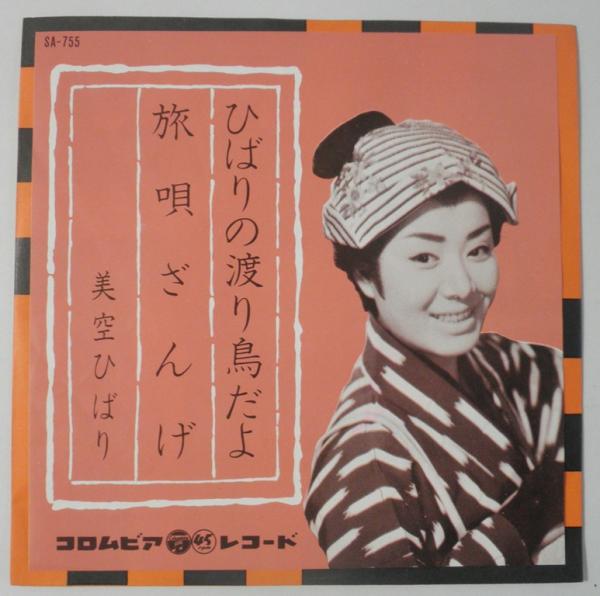 SA-755
ひばりの渡り鳥だよ
旅唄ざんげ
美空ひばり
コロムビア 45 rpm レコード